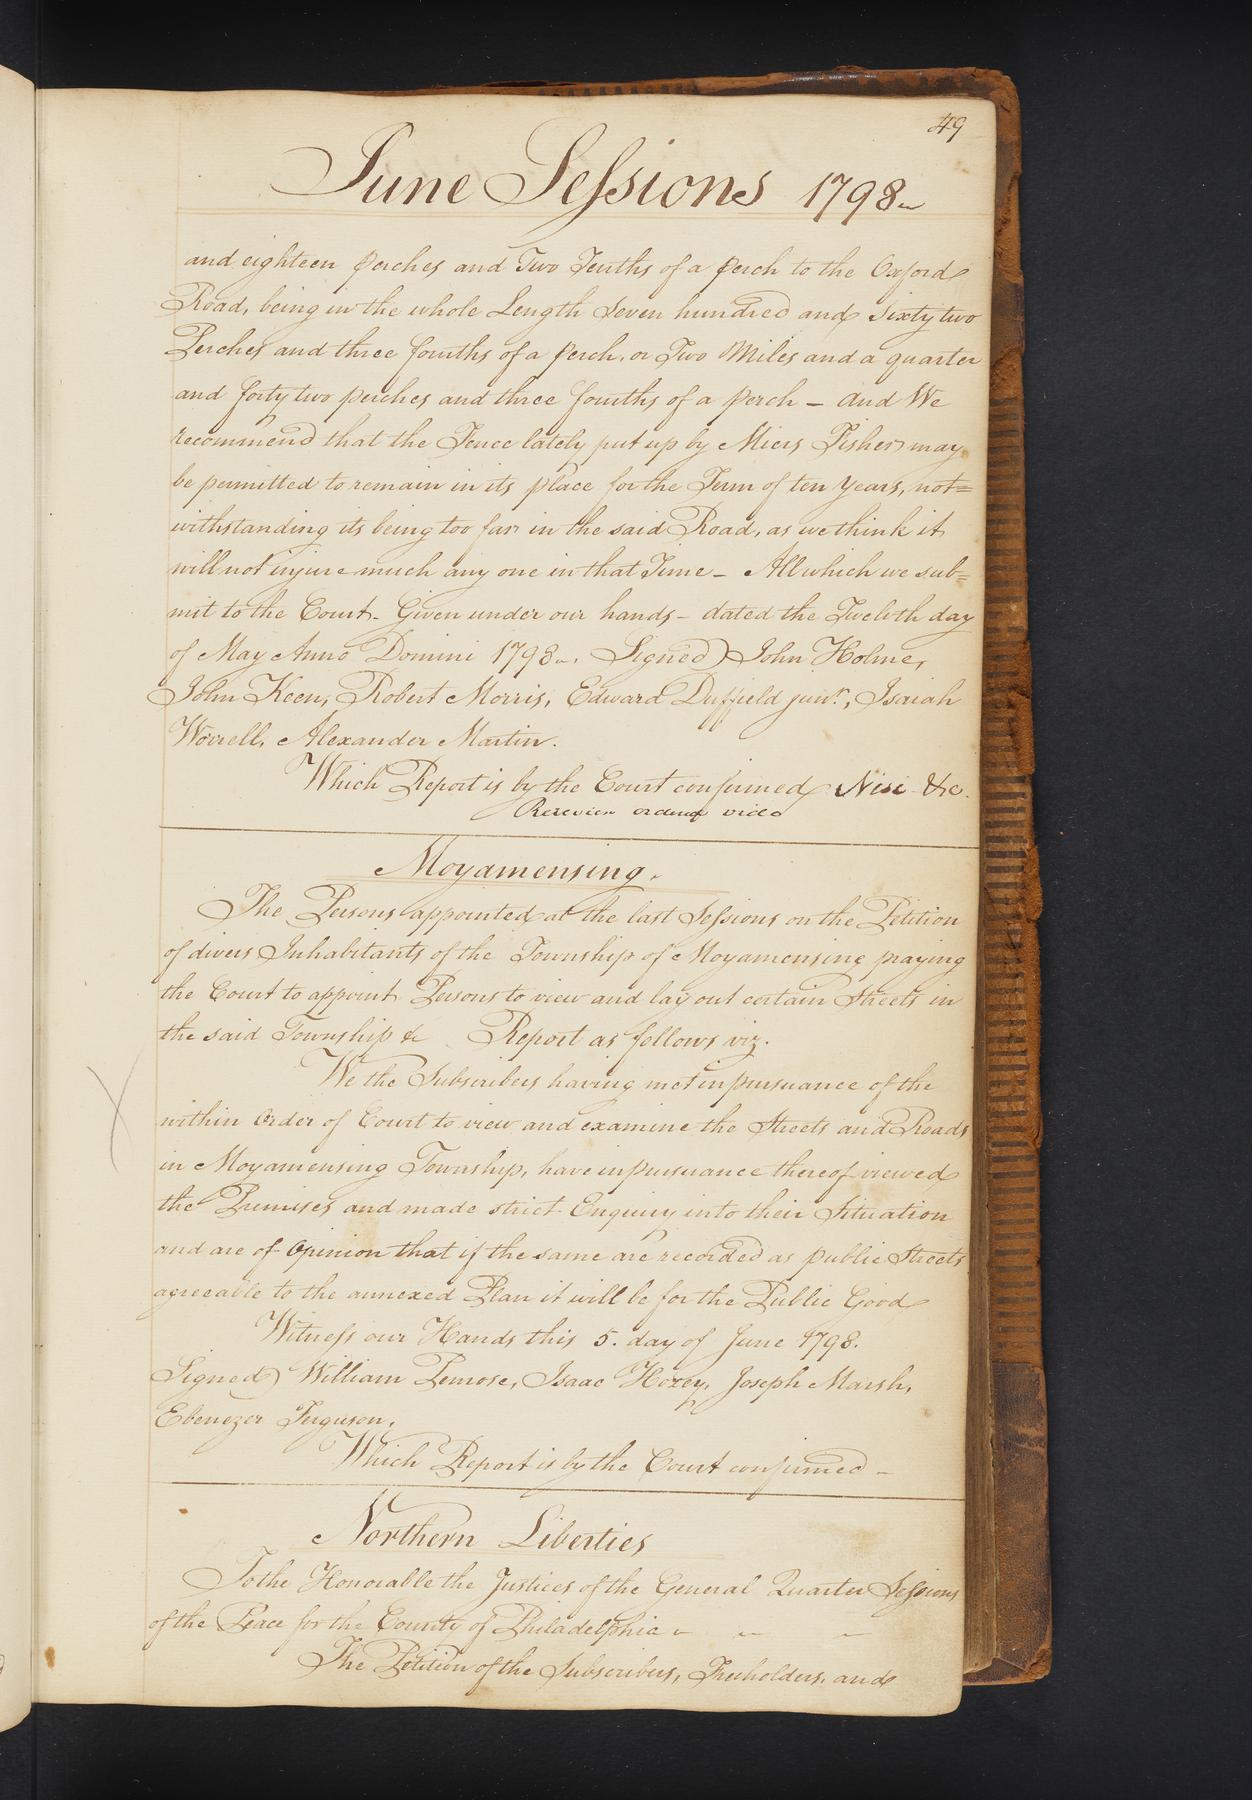 49
June Sessions 1798
and eighteen perches and Two Tenths of a perch to the Oxford
Road, being in the whole Length Seven hundred and Sixty two
Perches and three fourths of a perch, or Two Miles and a quarter
and forty two perches and three fourths of a perch - And We
recommend that the Fence lately put up by Miers Fisher may
be permitted to remain in its place for the Term of ten Years, not=
withstanding its being too far in the said Road, as we think it
will not injure much any one in that Time - All which we sub=
mit to the Court. Given under our hands - dated the Twelvth day
of May Anno Domini 1798. Signed) John Holme,
John Keen, Robert Morris, Edward Duffield junr., Isaiah
Worrell, Alexander Martin.
Which Report is by the Court confirmed Nisi &c.
Rereview ordered vide
Moyamensing.
The Persons appointed at the last Sessions on the Petition
of divers Inhabitants of the Township of Moyamensing praying
the Court to appoint Persons to view and lay out certain Streets in
the said Township &c Report as follows viz.
We the Subscribers having met in pursuance of the
within Order of Court to view and examine the Streets and Roads
in Moyamensing Township, have in pursuance thereof viewed
the Premises and made strict Enquiry into their Situation
and are of Opinion that if the same are recorded as public Streets
agreeable to the annexed Plan it will be for the Public Good
Witness our Hands this 5. day of June 1798.
Signed) William Penrose, Isaac Hozey, Joseph Marsh,
Ebenezer Ferguson.
Which Report is by the Court confirmed -
Northern Liberties
To the Honorable the Justices of the General Quarter Sessions
of the Peace for the County of Philadelphia
The Petition of the Subscribers, Freeholders, and